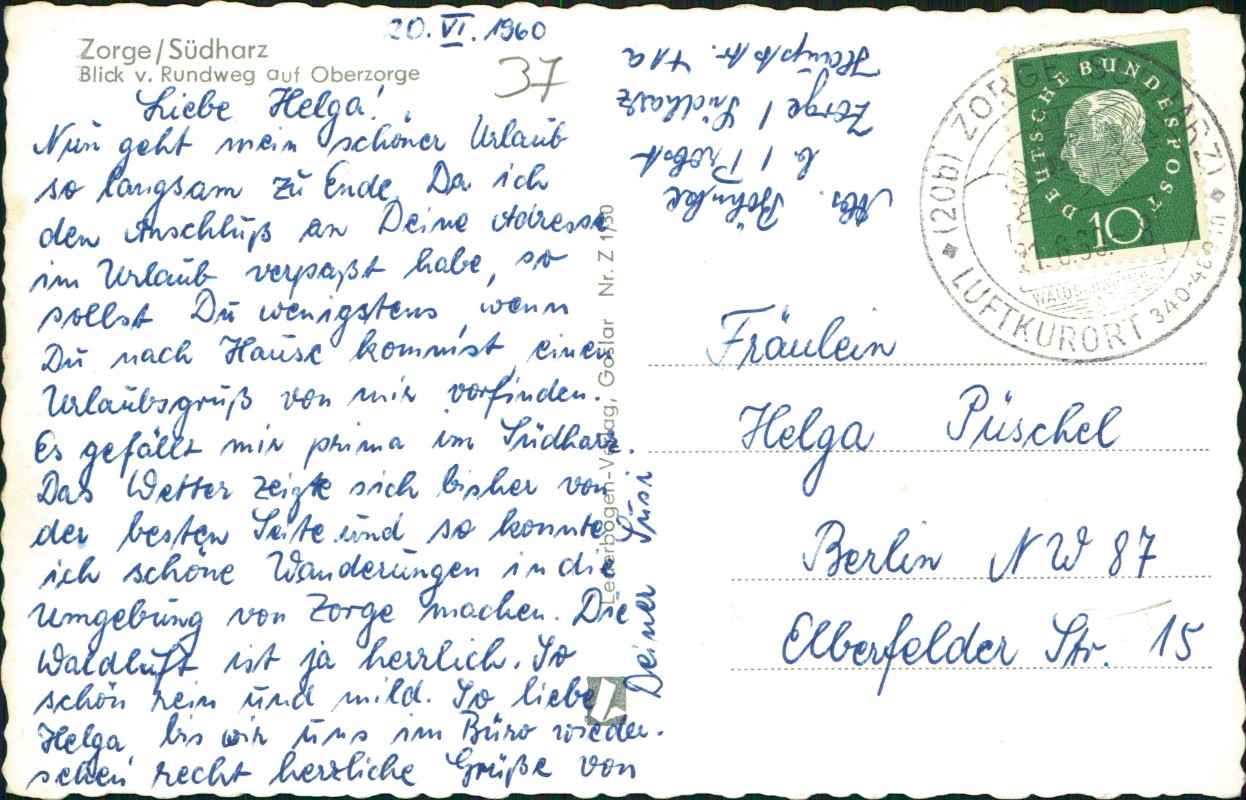 Zorge/Südharz
Blick v. Rundweg auf Oberzorge
20. VI. 1960
37
Liebe Helga!
Nun geht mein schöner Urlaub
so langsam zu Ende. Da ich
den Anschluß an Deine Adresse
im Urlaub verpaßt habe, so
sollst Du wenigstens, wenn
Du nach Hause kommst, einen
Urlaubsgruß von mir vorfinden.
Es gefällt mir prima im Südharz.
Das Wetter zeigte sich bisher von
der besten Seite und so konnte
ich schöne Wanderungen in die
Umgebung von Zorge machen. Die
Waldluft ist ja herrlich. So
schön rein und mild. So liebe
Helga, bis wir uns im Büro wieder-
sehen recht herzliche Grüße von
Deiner Susi
Abs. Böhnke
b/ Probst
Zorge / Südharz
Hauptstr. 41a
Lederbogen-Verlag, Goslar Nr. Z 1/30
DEUTSCHE BUNDESPOST
10
(20b) ZORGE (SÜDHARZ)
21.6.60
LUFTKURORT
Fräulein
Helga Püschel
Berlin NW 87
Elberfelder Str. 15